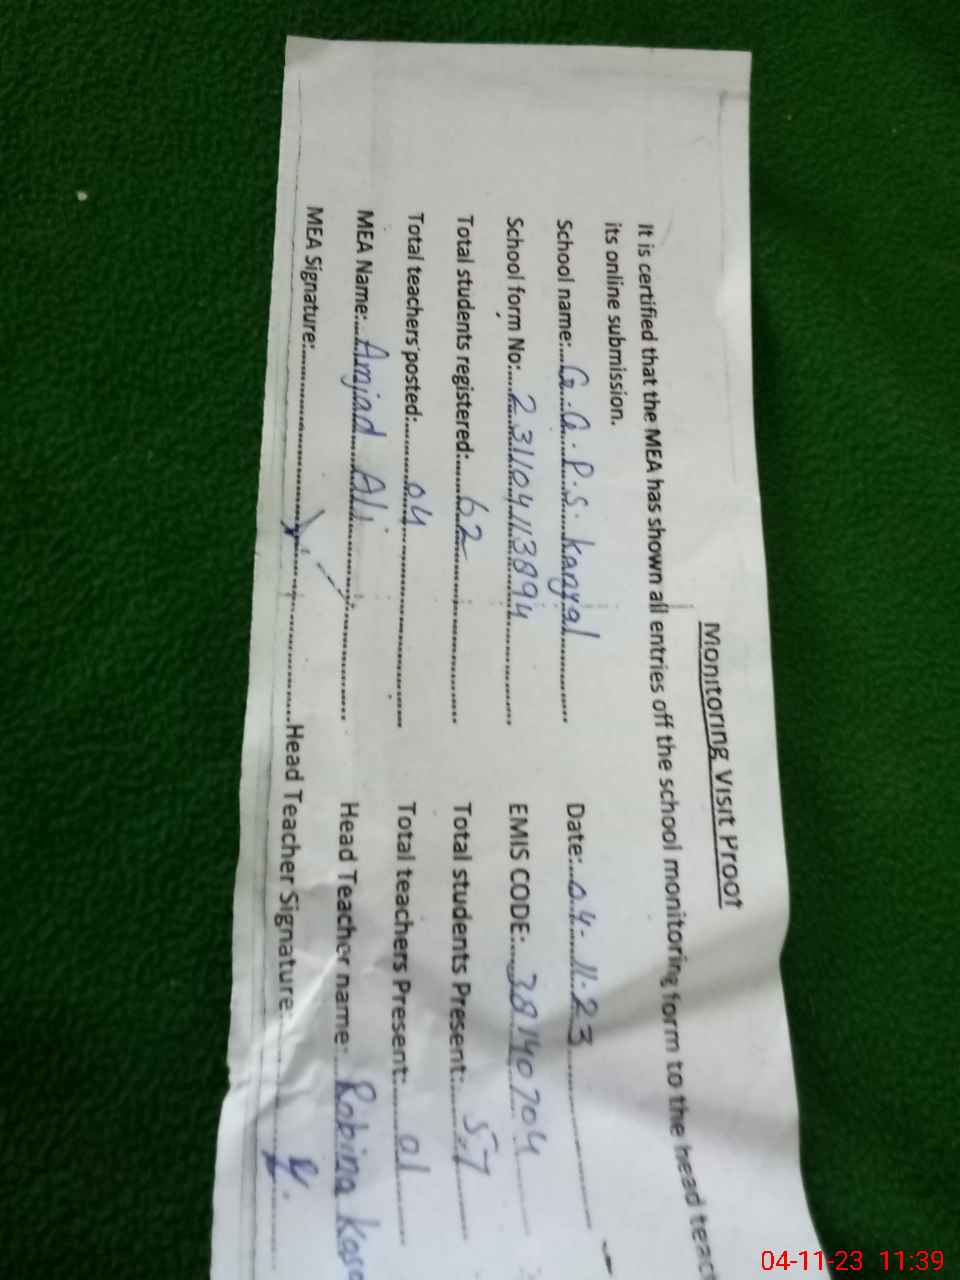 Monitoring Visit Proof
It is certified that the MEA has shown all entries off the school monitoring form to the head teac
its online submission.
School name:....G.G.P.S. kanyal............ Date:..04-11-23............
School form No:....231104113894............ EMIS CODE:....38140704......
Total students registered:.....62............ Total students Present:....57......
Total teachers posted:........04............ Total teachers Present:......01......
MEA Name:...Amjad Ali............ Head Teacher name:..Robina
MEA Signature:............ Head Teacher Signature:............
04-11-23 11:39